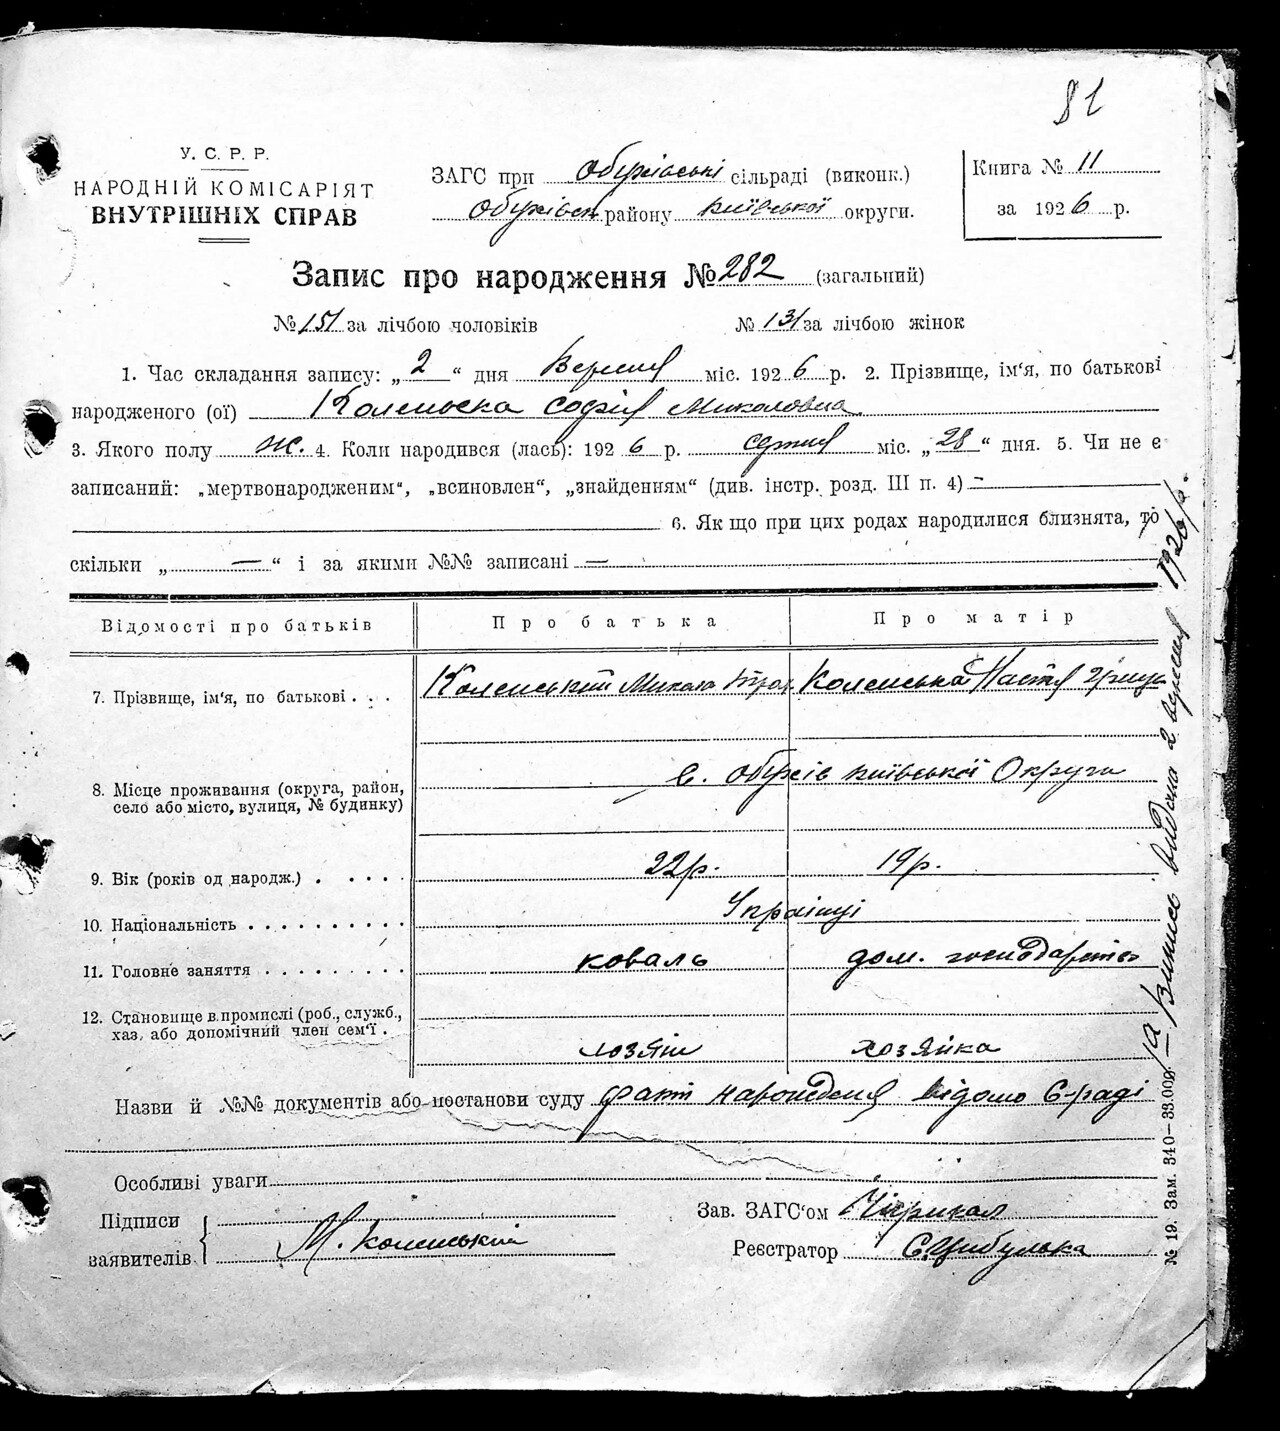 81
У. С. Р. Р.
НАРОДНІЙ КОМІСАРІЯТ
ВНУТРІШНІХ СПРАВ
ЗАГС при Обухівські сільраді (виконк.)
Обухівськ. району Київської округи.
Книга № 11
за 1926 р.
Запис про народження № 282 (загальний)
№ 151 за лічбою чоловіків № 131 за лічбою жінок
1. Час складання запису: „2“ дня Вересня міс. 1926 р. 2. Прізвище, ім'я, по батькові
народженого (ої) Софія Миколовна
3. Якого полу Ж. 4. Коли народився (лась): 1926 р. серпня міс. „28“ дня. 5. Чи не є
записаний: „мертвонародженим“, „всиновлен“, „знайденням“ (див. інстр. розд. III п. 4) —
6. Як що при цих родах народилися близнята, то
скільки „—“ і за якими №№ записані —
Відомості про батьків
Про батька
Про матір
7. Прізвище, ім'я, по батькові . . .
Коленський Микола
Коленська Настя
8. Місце проживання (округа, район,
село або місто, вулиця, № будинку)
с. Обухів Київської Округи
9. Вік (років од народж.) . . . . .
22 р.
19 р.
10. Національність . . . . . . . . . .
Українці
11. Головне заняття . . . . . . . . .
коваль
дом. господарство
12. Становище в промислі (роб., служб.,
хаз. або допомічний член сем'ї .
хозяїн
хозяйка
Назви й №№ документів або постанови суду факт народження відомо С-раді
Особливі уваги
Підписи
заявителів
М. Коленський
Зав. ЗАГС'ом
Реєстратор С. Цибулька
Випись видана 2 вересня 1926 р.
№ 19. Зам. 340—33.000